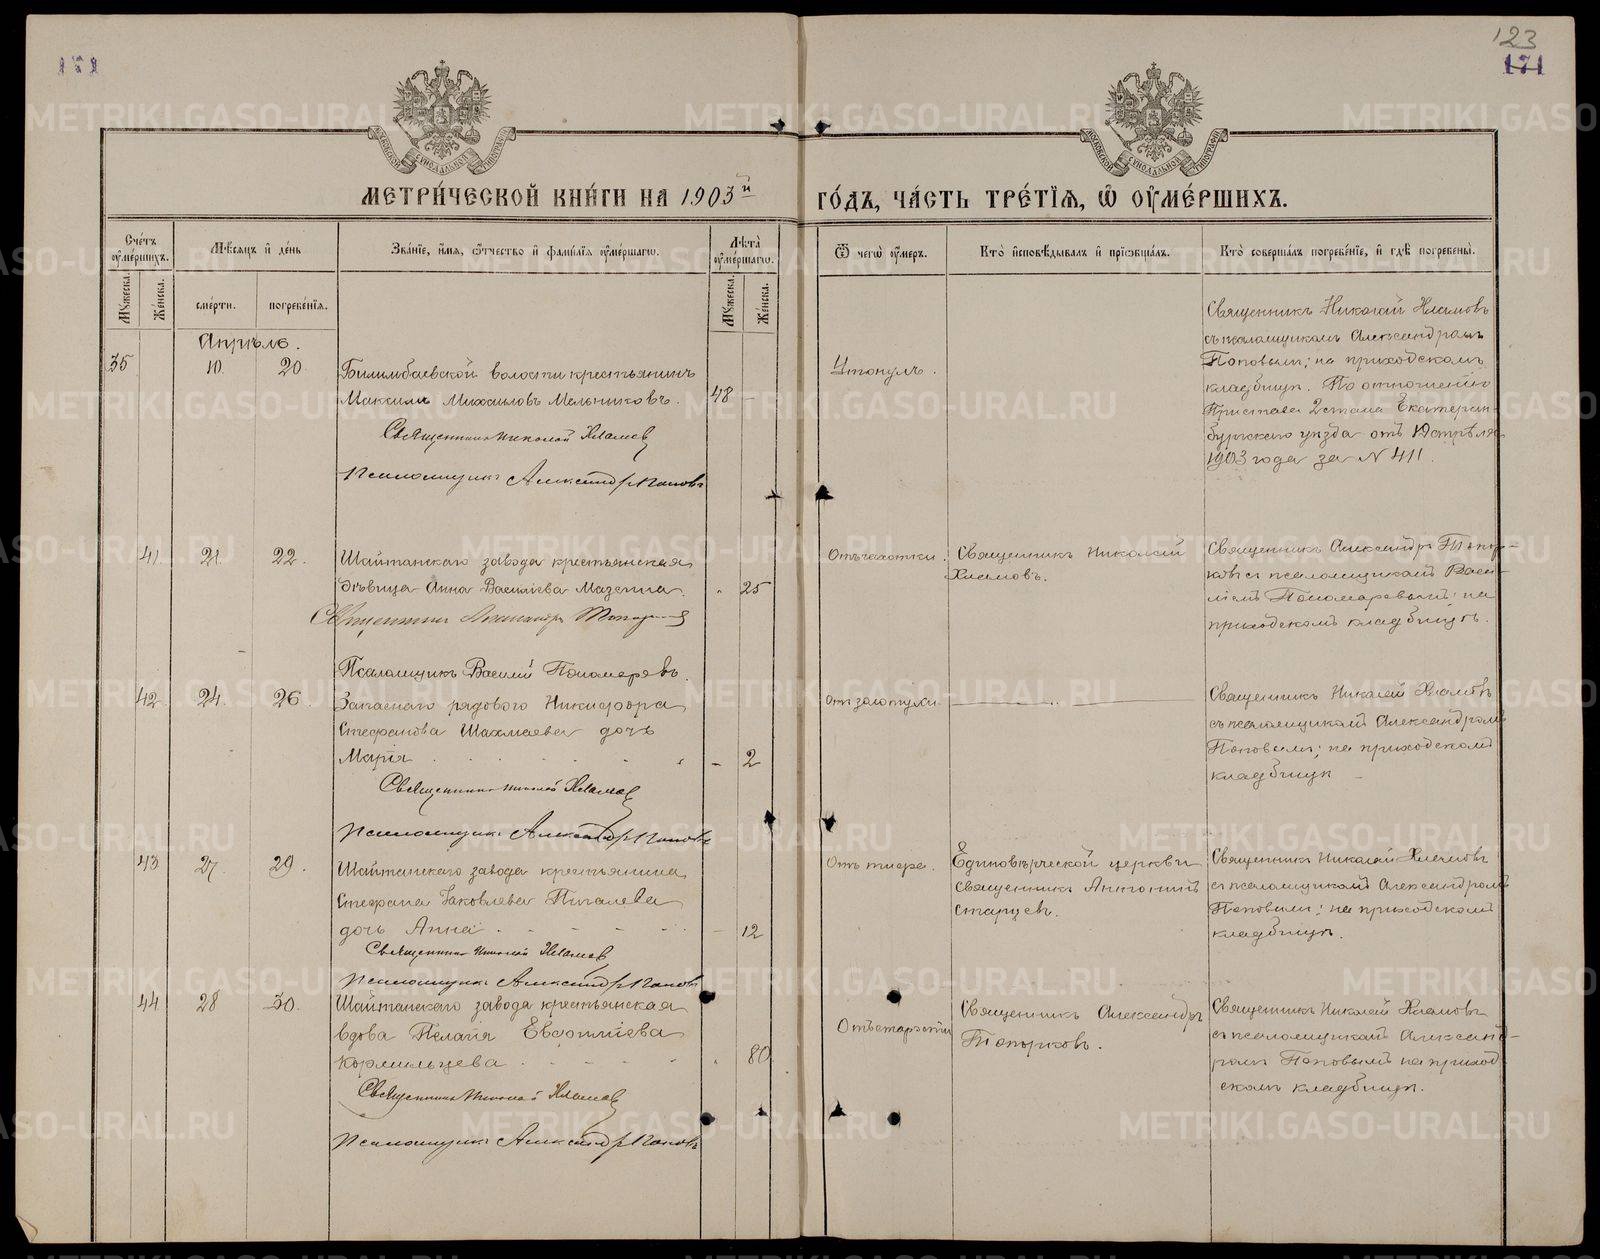 171
123
171
МЕТРИ́ЧЕСКОЙ КНИ́ГИ НА 1903й
ГО́ДЪ, ЧА́СТЬ ТРЕ́ТІѦ, Ѡ҆ ОУ҆МЕ́РШИХЪ.
Сче́тъ оу҆ме́ршихъ.
Мѣ́сяцъ и҆ де́нь
Зва́нїе, и҆́мя, ѻ҆́тчество и҆ фами́лїя оу҆ме́ршагѡ.
Лѣ̀та оу҆ме́ршагѡ.
Ѿ чегѡ̀ оу҆́меръ.
Кто̀ и҆сповѣ́дывалъ и҆ прїѡбща́лъ.
Кто̀ соверша́лъ погребе́нїе, и҆ гдѣ̀ погребены̀.
Му́жеска.
Же́нска.
сме́рти.
погребе́нїя.
Му́жеска.
Же́нска.
Апрѣль.
35
10.
20
Билимбаевской волости крестьянинъ
Максимъ Михаиловъ Мельниковъ.
48
Священникъ Николай Хламов
Псаломщикъ Александръ Поповъ
Утонулъ.
Священникъ Николай Хламовъ
съ псаломщикомъ Александромъ
Поповымъ; на приходскомъ
кладбищѣ. По отношенію
Пристава 2 стана Екатерин-
бургскаго уѣзда отъ Апрѣля
1903 года за № 411.
41
21.
22.
Шайтанскаго завода крестьянская
дѣвица Анна Василіева Мазеина.
25
Священникъ Александръ Топорковъ
Псаломщикъ Василій Пономаревъ.
Отъ чахотки.
Священникъ Николай
Хламовъ.
Священникъ Александръ Топор-
ковъ съ псаломщикомъ Васи-
ліемъ Пономаревымъ; на
приходскомъ кладбищѣ.
42
24.
26.
Запаснаго рядового Никифора
Стефанова Шахмаева дочь
Марія
2
Священникъ Николай Хламов
Псаломщикъ Александръ Поповъ
От золотухи
Священникъ Николай Хламовъ
съ псаломщикомъ Александромъ
Поповымъ; на приходскомъ
кладбищѣ
43
27.
29.
Шайтанскаго завода крестьянина
Стефана Іаковлева Пигалева
дочь Анна
12
Священникъ Николай Хламов
Псаломщикъ Александръ Поповъ
Отъ тифа.
Единовѣрческой церкви
священникъ Антоній
Старцевъ.
Священникъ Николай Хламовъ
съ псаломщикомъ Александромъ
Поповымъ; на приходскомъ
кладбищѣ.
44
28
30.
Шайтанскаго завода крестьянская
вдова Пелагія Евсогніева
Кормильцева
80
Священникъ Николай Хламов
Псаломщикъ Александръ Поповъ
Отъ старости
Священникъ Александръ
Топорковъ.
Священникъ Николай Хламовъ
съ псаломщикомъ Александ-
ромъ Поповымъ на приход
скомъ кладбищѣ.
METRIKI.GASO-URAL.RU